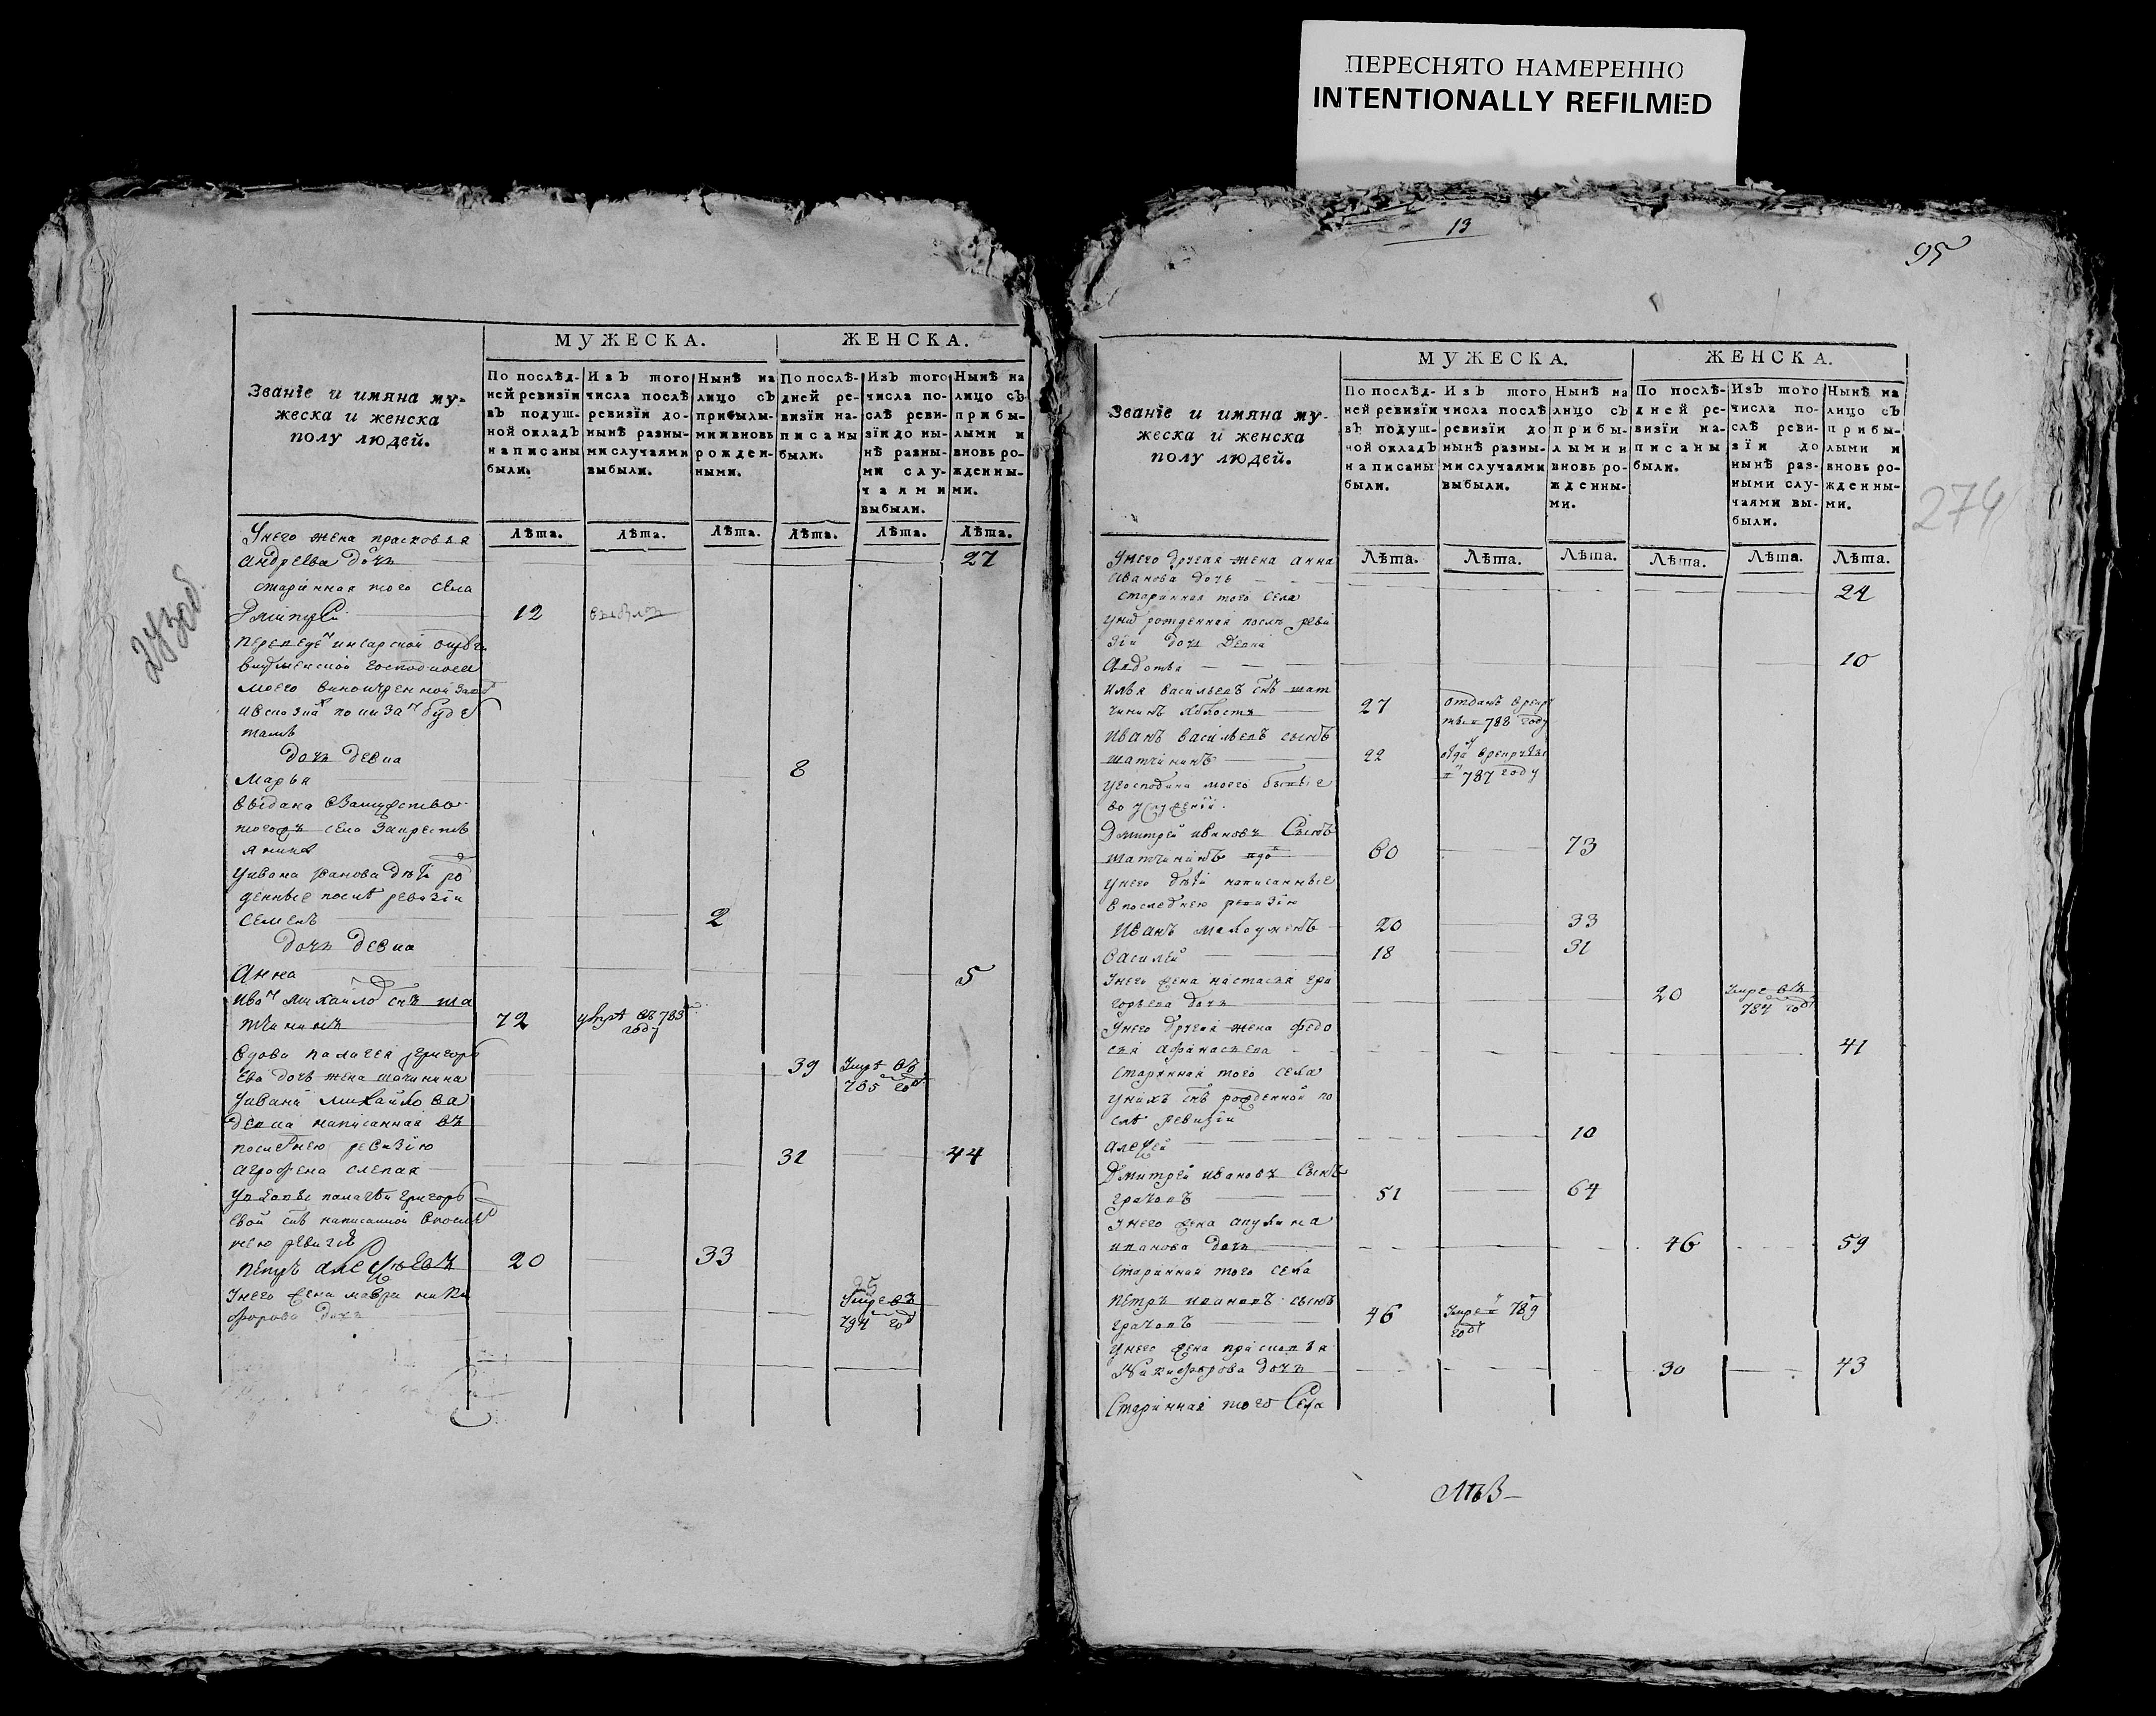 ПЕРЕСНЯТО НАМЕРЕННО
INTENTIONALLY REFILMED
273об.
Званїе и имяна му-
жеска и женска
полу людей.
МУЖЕСКА.
ЖЕНСКА.
По послѣд-
ней ревизїи
въ подуш-
ной окладъ
написаны
были.
Изъ того
числа послѣ
ревизїи до-
нынѣ разны-
ми случаями
выбыли.
Нынѣ на
лицо съ
прибылы-
ми и вновь
рожден-
ными.
По послѣ-
дней ре-
визїи на-
писаны
были.
Изъ того
числа по-
слѣ реви-
зїи до ны-
нѣ разны-
ми слу-
чаями
выбыли.
Нынѣ на
лицо съ
прибы-
лыми и
вновь ро-
жденны-
ми.
Лѣта. Лѣта. Лѣта. Лѣта. Лѣта. Лѣта.
Унего жена прасковья
андреева дочь 27
старинная того села
12
моего
тамъ
дочь девка
марья 8
выдана взамужство
села
Уивана дѣти
денные послѣ ревизїи
семенъ 2
дочь девка
Анна 5
михайло снъ ша
тчининъ 72 умре въ 783
году
вдова палагея григорь
ева дочь жена шатчинина 39 умре въ
785 год
Уивана михайлова
девка написанная въ
последнею ревизїю
агрофена слепая 31 44
палагѣи григорь
евой снъ написанной впослѣд
нею ревизїю
петръ алексѣевъ 20 33
25
Унего жена мавра ники умре въ
форова дочь 794 год
13
95
274
Званїе и имяна му-
жеска и женска
полу людей.
МУЖЕСКА.
ЖЕНСКА.
По послѣд-
ней ревизїи
въ подуш-
ной окладъ
написаны
были.
Изъ того
числа послѣ
ревизїи до
нынѣ разны-
ми случаями
выбыли.
Нынѣ на
лицо съ
прибы-
лыми и
вновь ро-
жденны-
ми.
По послѣ-
дней ре-
визїи на-
писаны
были.
Изъ того
числа по-
слѣ реви-
зїи до
нынѣ раз-
ными слу-
чаями вы-
были.
Нынѣ на
лицо съ
прибы-
лыми и
вновь ро-
жденны-
ми.
Лѣта. Лѣта. Лѣта. Лѣта. Лѣта. Лѣта.
Унего другая жена анна
иванова дочь
старинная того села 24
уних рожденная послѣ реви
зїи дочь девка
Авдотья 10
илья васильевъ снъ шат
чининъ холостъ 27 отданъ врекру
ты в 788 году
иванъ васильевъ сынъ
шатчининъ 22 отда врекруты
в 787 году
угосподина моего бывшїе
во услуженїи.
Дмитрей ивановъ сынъ
шатчининъ вдов 60 73
унего дѣти написанные
впоследнею ревизїю
иванъ малоуменъ 20 33
василей 18 31
Унего жена настасья гри
горьева дочь 20 умре въ
784 год
Унего другая жена федо
сья афанасьева 41
старинная того села
унихъ снъ рожденной по
слѣ ревизїи
алексей 10
Дмитрей ивановъ сынъ
грачовъ 51 64
Унего жена акулина
иванова дочь 46 59
старинная того села
петръ ивановъ сынъ
грачовъ 46 умре в 789
году
унего жена прасковья
никифорова дочь 30 43
старинная того села